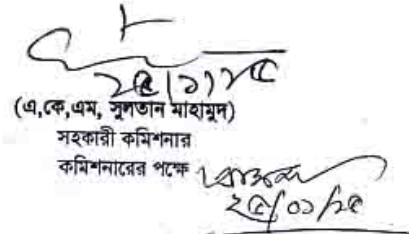 ২৫/১/২৫
(এ,কে,এম, সুলতান মাহামুদ)
সহকারী কমিশনার
কমিশনারের পক্ষে
২৫/০১/২৫